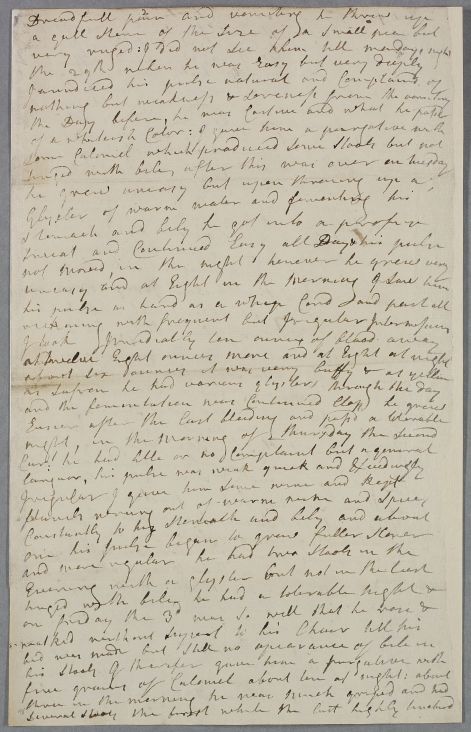 Dreadfull pain and vomiting he threw up
a gall stone of the size of a small pea but
very ruged: I did not see him till monday night
the 29th when he was Easy but very deeply
Jaundiced his pulse natural and Complaind of
nothing but weakness & soreness from the vomiting
the Day before, he was Costive and what he past
of a whiteish Color: I gave him a purgative with
some Calomel which produced some stools but not
tinged with bile, after this was over on tuesday
he grew uneasy but upon throwing up a
Glyster of warm water and fomenting his
stomach and bely he got into a profuse
sweat and Continued Easy all Day his pulse
not moved, in the night however he grew very
uneasy and at Eight in the morning I saw him
his pulse as hard as a whip Cord and past all
reckoning with frequent but Irregular Intermissions
I took Immediatly ten ounces of blood away
at twelve Eight ounces more and at Eight at night
about six ounces it was very buffy & as yellow
as safron he had various glysters through the day
and the fomentation was Continued he grew
Easier after the last bleeding and pass'd a tolerable
night, in the morning of thursday the second
he had little or no Complaint but a general
languor, his pulse was weak quick and Exceedingly
Irregular I gave him some wine and kept
flannels wrung out of warm wine and spices
Constantly to his stomach and bely and about
one his pulse began to grow fuller slower
and more regular he had two stools in the
Evening with a glyster but not in the least
tinged with bile, he had a tolerable night &
on friday the 3d was so well that he rose &
walked without support to his Chair till his
bed was made but still no apearance of bile in
his stools I therefor gave him a purgative with
five grains of Calomel about ten at night: about
three in the morning he was much griped and had
several stools the first white the last highly tinched